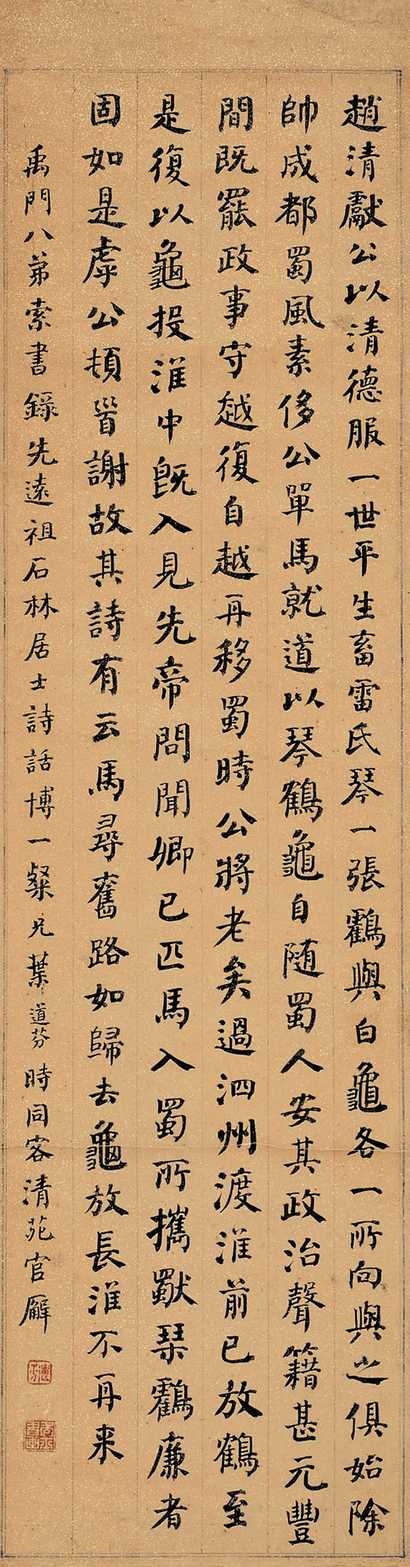 趙清獻公以清德服一世平生畜雷氏琴一張鶴與白龜各一所向與之俱始除
帥成都蜀風素侈公單馬就道以琴鶴龜自随蜀人安其政治聲籍甚元豐
間既罷政事守越復自越再移蜀時公將老矣過泗州渡淮前已放鶴至
是復以龜投淮中既入見先帝問聞卿已匹馬入蜀所攜獸琹鶴廉者
固如是虖公頓首謝故其詩有云馬尋舊路如歸去龜放長淮不再来
禹門八弟索書錄先遠祖石林居士詩話博一粲兄葉道芬時同客清苑官廨